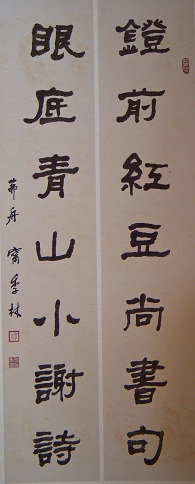 鐙前紅豆尚書句
眼底青山小謝詩
茀舟甯季林